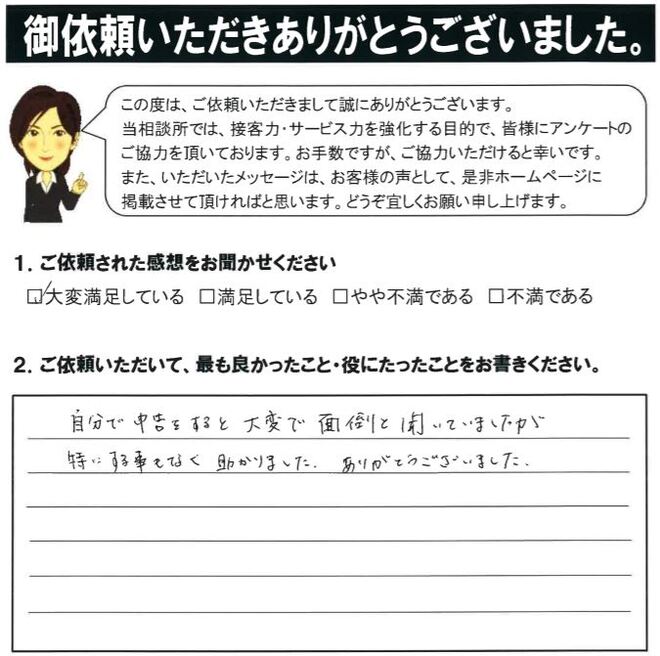 御依頼いただきありがとうございました。
この度は、ご依頼いただきまして誠にありがとうございます。
当相談所では、接客力・サービス力を強化する目的で、皆様にアンケートの
ご協力を頂いております。お手数ですが、ご協力いただけると幸いです。
また、いただいたメッセージは、お客様の声として、是非ホームページに
掲載させて頂ければと思います。どうぞ宜しくお願い申し上げます。
1. ご依頼された感想をお聞かせください
☑大変満足している □満足している □やや不満である □不満である
2. ご依頼いただいて、最も良かったこと・役にたったことをお書きください。
自分で申告をすると大変で面倒と聞いていましたが
特にする事もなく助かりました。ありがとうございました。